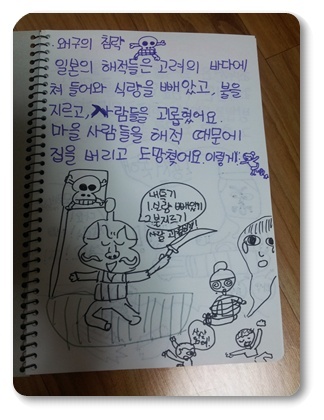 왜구의 침략
일본의 해적들은 고려의 바다에
쳐 들어와 식량을 빼았고, 불을
지르고, 사람들을 괴롭혔어요.
마을 사람들을 해적 때문에
집을 버리고 도망쳤어요 이렇게
내특기
1.식량 빼앗기
2.불지르기
사람